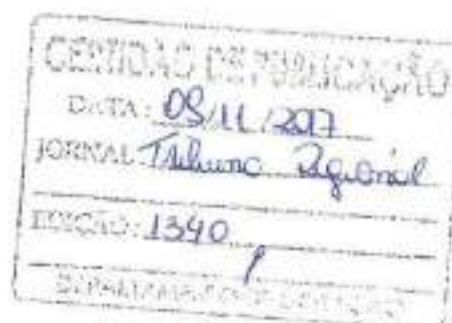 CERTIDÃO DE PUBLICAÇÃO
DATA: 09/11/2017
JORNAL: Tribuna Regional
EDIÇÃO: 1340
DEPARTAMENTO DE